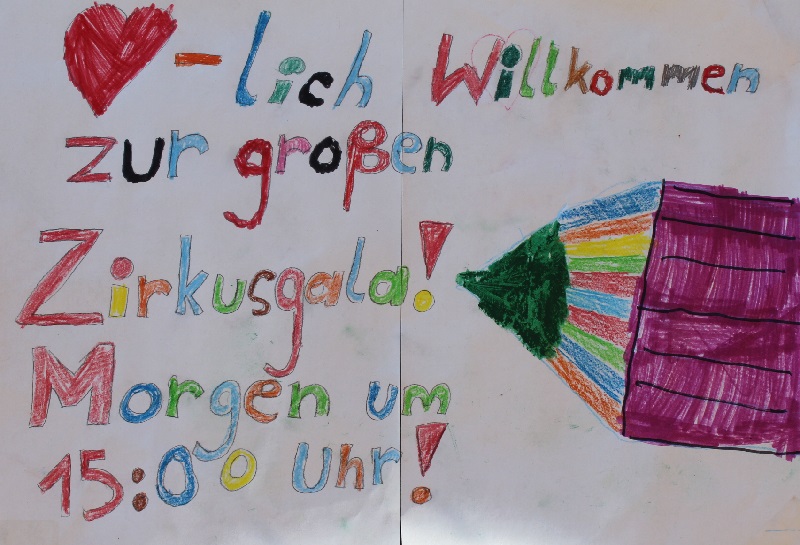 ♥-lich Willkommen
zur großen
Zirkusgala!
Morgen um
15:00 Uhr!